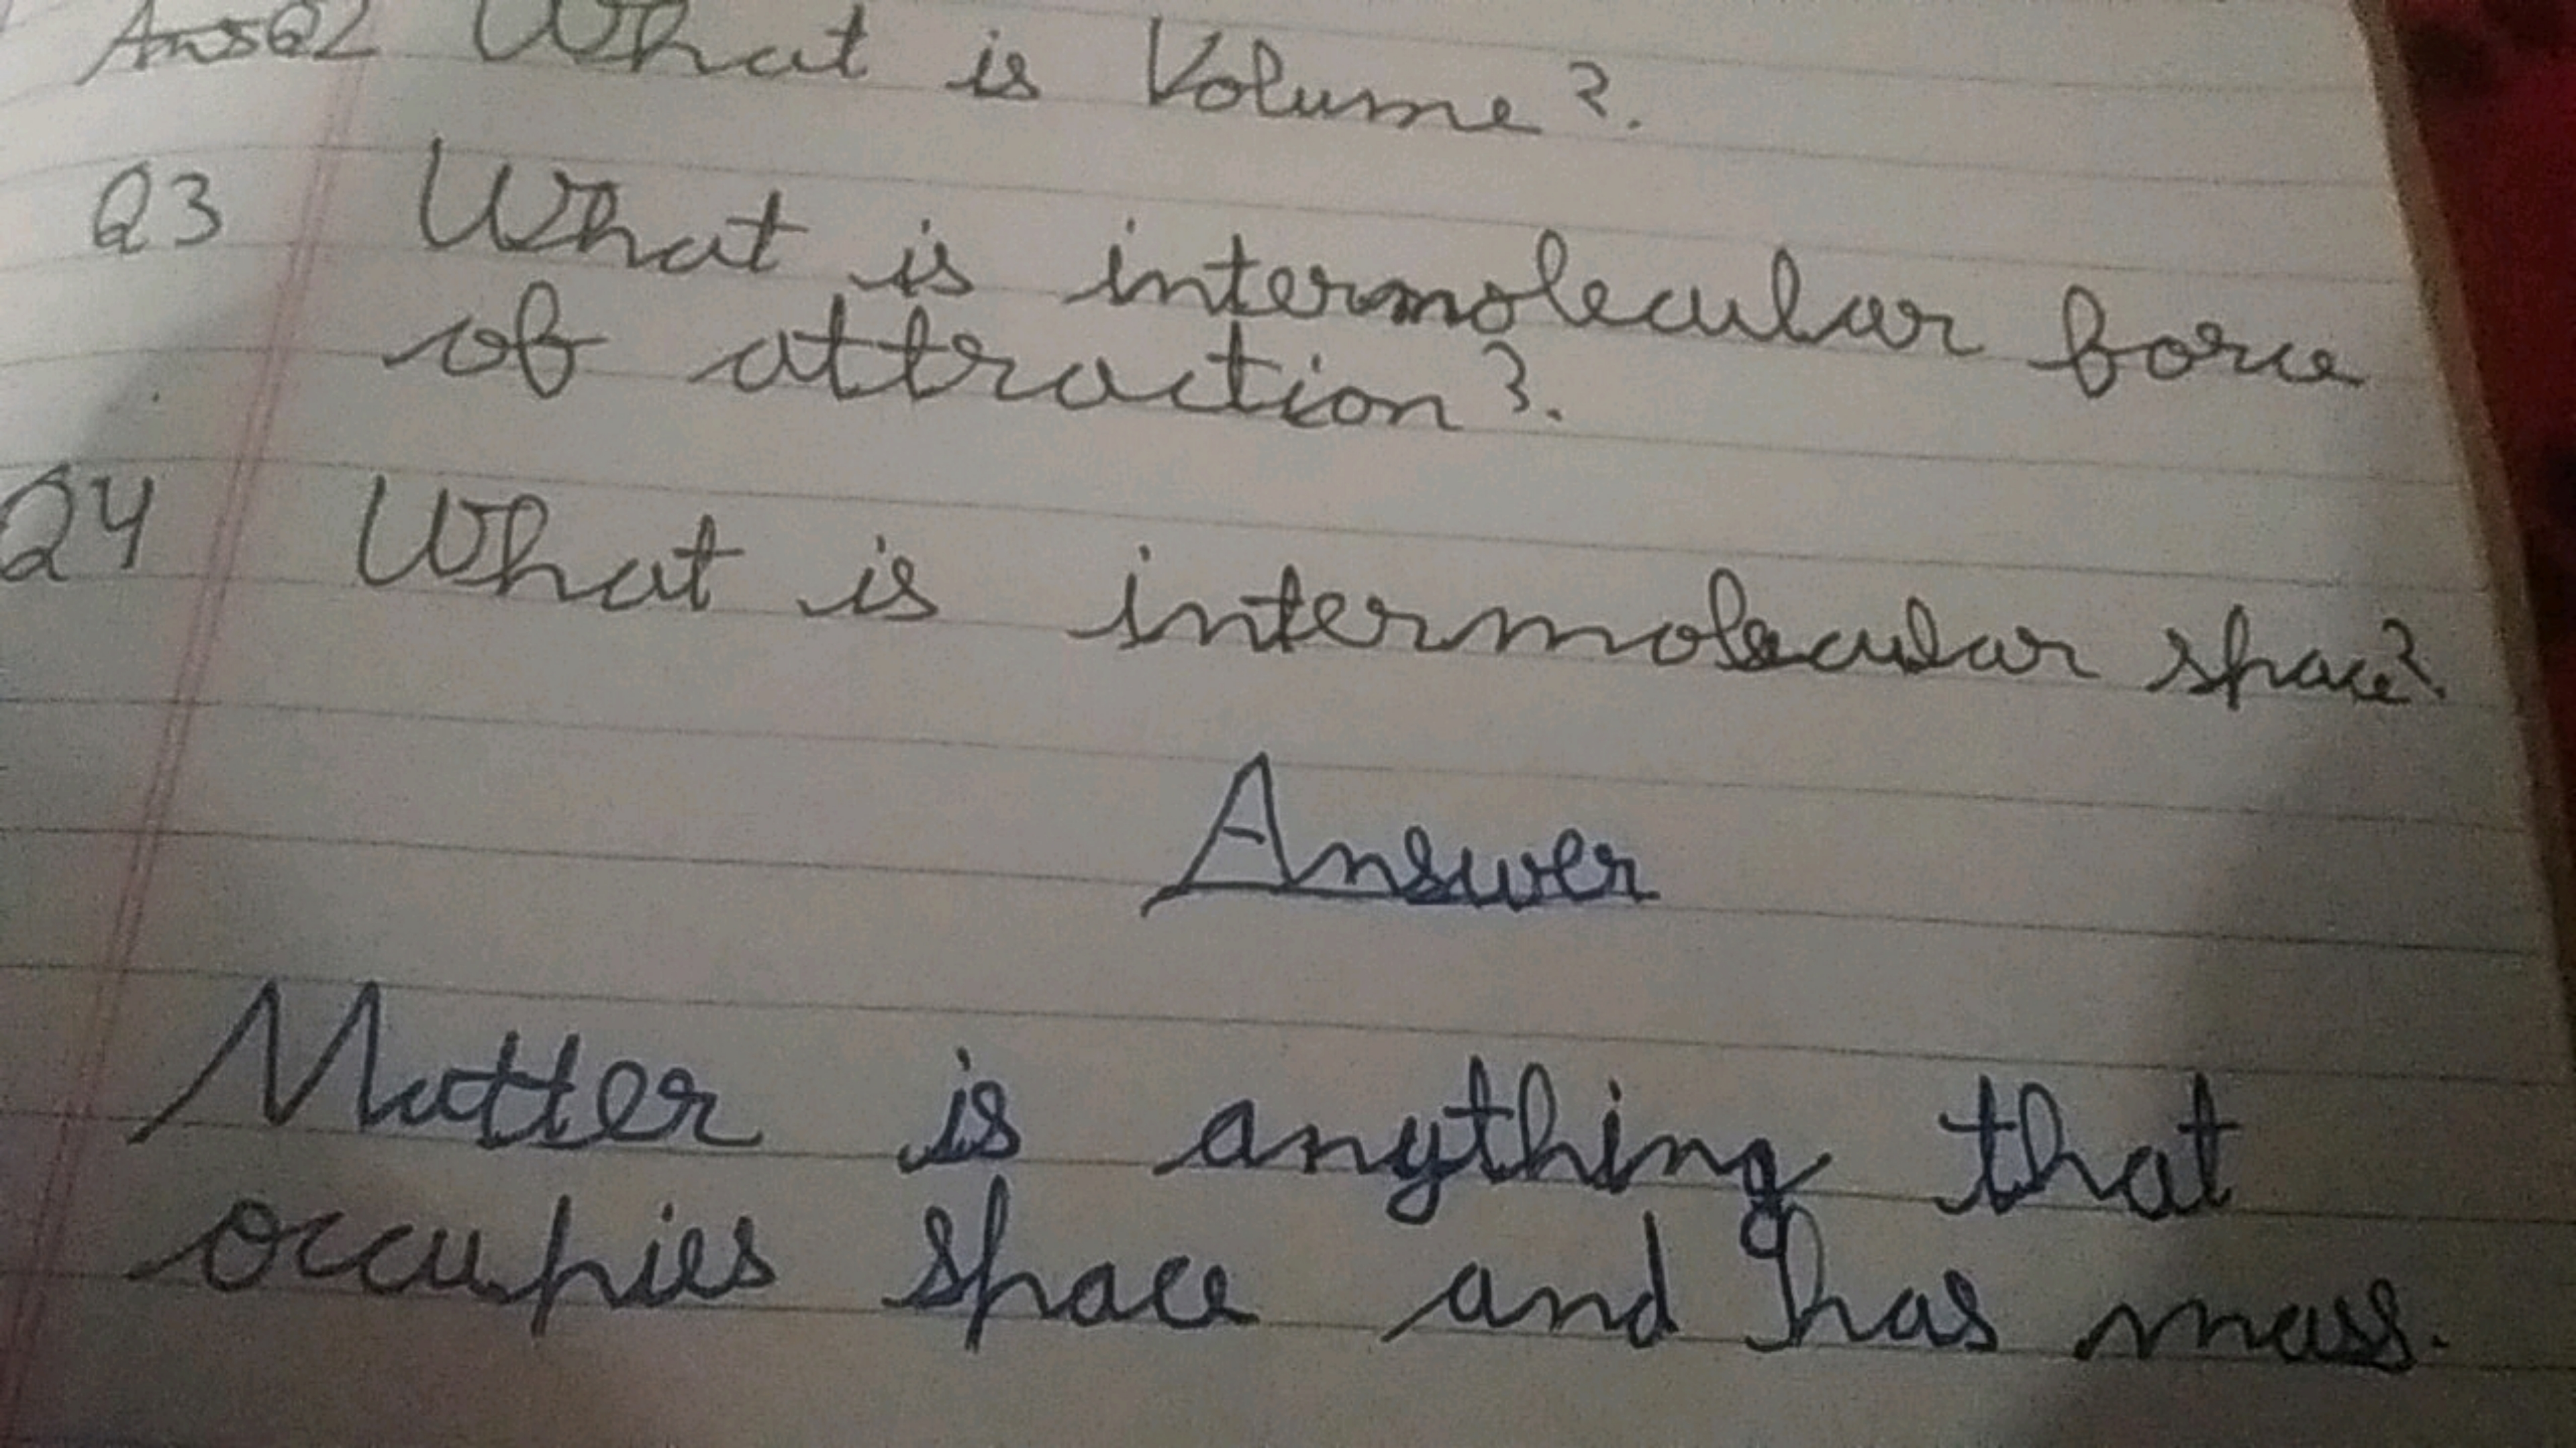 Ans Q2 What is Volume?.
Q3 What is intermolecular force
of attraction?.
Q4 What is intermolecular space?.
Answer
Matter is anything that
occupies space and has mass.